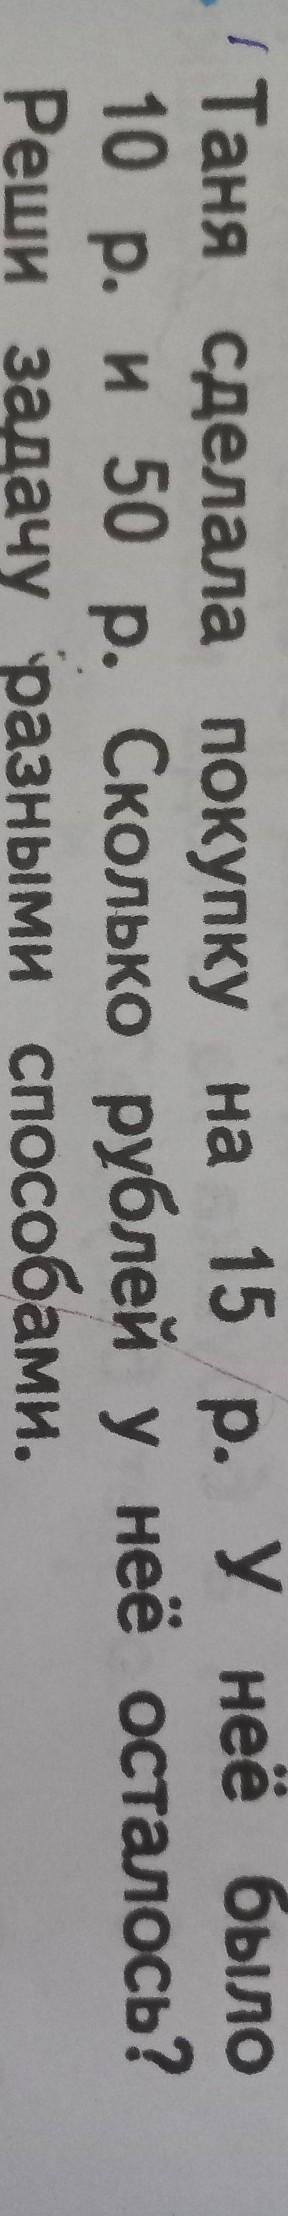 Таня сделала покупку на 15 р. У неё было
10 р. и 50 р. Сколько рублей у неё осталось?
Реши задачу разными способами.